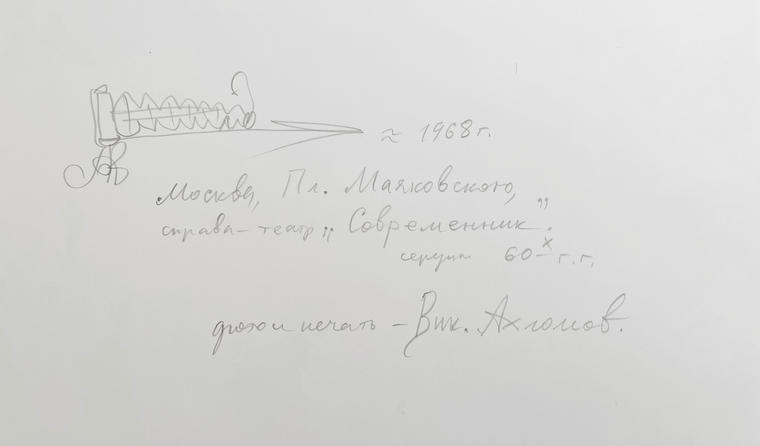 ≈ 1968 г.
Москва, Пл. Маяковского,
справа – театр „Современник".
середин 60-х г.г.
фото и печать – Вик. Ахломов.